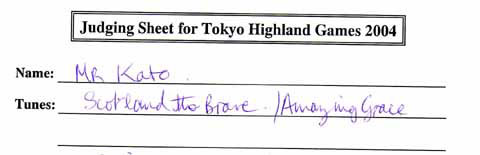 Judging Sheet for Tokyo Highland Games 2004
Name: MR Kato.
Tunes: Scotland the Brave. / Amazing Grace